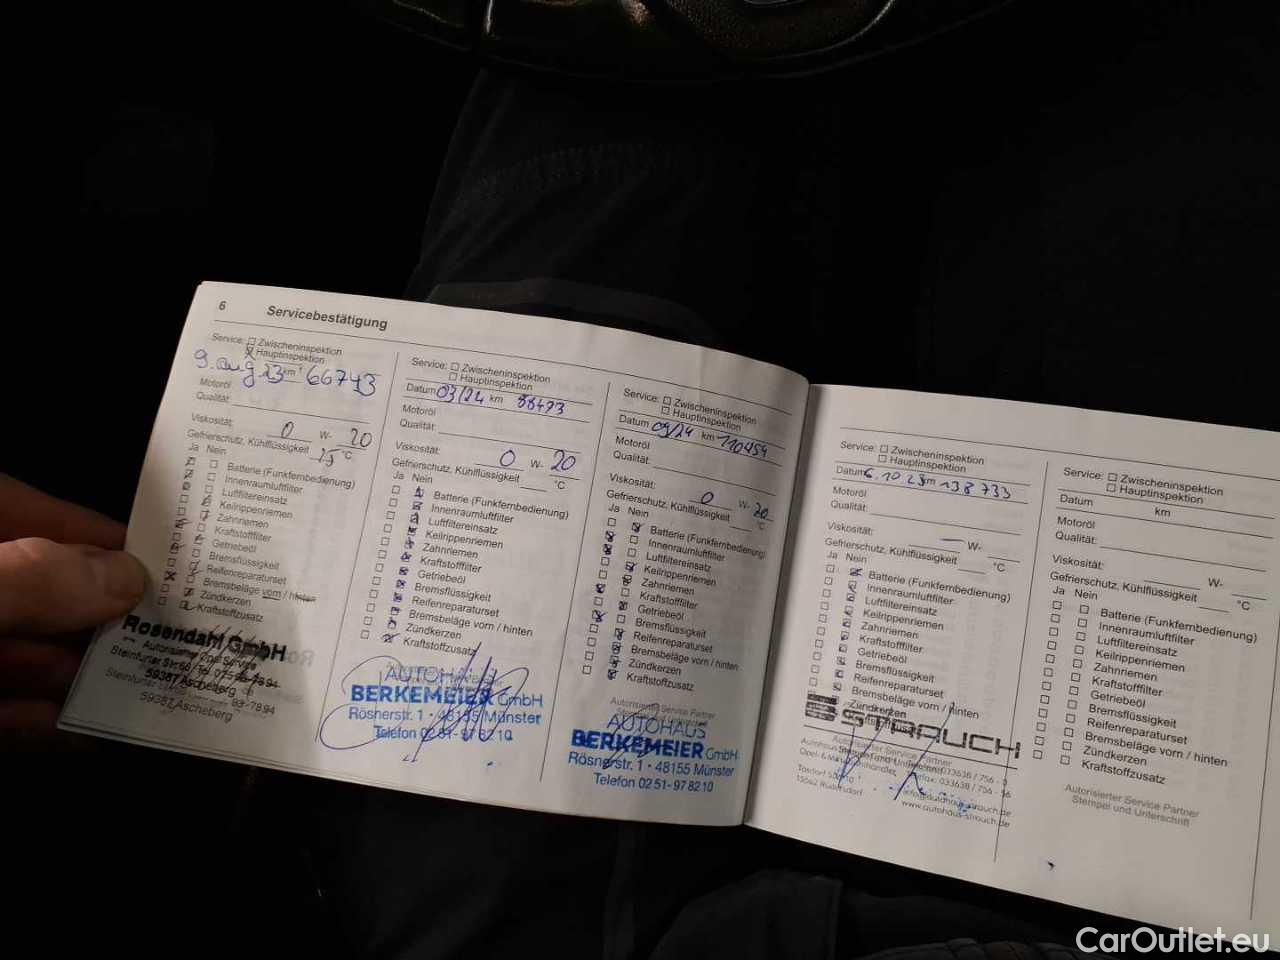 6 Servicebestätigung
Service: Zwischeninspektion
Hauptinspektion
9. aug 23 km 66743
Motoröl
Qualität:
Viskosität: 0 W- 20
Gefrierschutz, Kühlflüssigkeit 25 °C
Ja Nein
Batterie (Funkfernbedienung)
Innenraumluftfilter
Luftfiltereinsatz
Keilrippenriemen
Zahnriemen
Kraftstofffilter
Getriebeöl
Bremsflüssigkeit
Reifenreparaturset
Bremsbeläge vorn / hinten
Zündkerzen
Kraftstoffzusatz
Rosendahl GmbH
Autorisierter Opel Service
59387 Ascheberg
59387 Ascheberg
Service: Zwischeninspektion
Hauptinspektion
Datum 03/24 km 88473
Motoröl
Qualität:
Viskosität: 0 W- 20
Gefrierschutz, Kühlflüssigkeit °C
Ja Nein
Batterie (Funkfernbedienung)
Innenraumluftfilter
Luftfiltereinsatz
Keilrippenriemen
Zahnriemen
Kraftstofffilter
Getriebeöl
Bremsflüssigkeit
Reifenreparaturset
Bremsbeläge vorn / hinten
Zündkerzen
Kraftstoffzusatz
AUTOHAUS
BERKEMEIER GmbH
Rösnerstr. 1 · 48155 Münster
Telefon 02 51 - 97 82 10
Service: Zwischeninspektion
Hauptinspektion
Datum 09/24 km 110454
Motoröl
Qualität:
Viskosität: 0 W- 20
Gefrierschutz, Kühlflüssigkeit °C
Ja Nein
Batterie (Funkfernbedienung)
Innenraumluftfilter
Luftfiltereinsatz
Keilrippenriemen
Zahnriemen
Kraftstofffilter
Getriebeöl
Bremsflüssigkeit
Reifenreparaturset
Bremsbeläge vorn / hinten
Zündkerzen
Kraftstoffzusatz
Autorisierter Service Partner
AUTOHAUS
BERKEMEIER GmbH
Rösnerstr. 1 · 48155 Münster
Telefon 02 51 - 97 82 10
Service: Zwischeninspektion
Hauptinspektion
Datum 6.10.25 km 138733
Motoröl
Qualität:
Viskosität: — W-
Gefrierschutz, Kühlflüssigkeit °C
Ja Nein
Batterie (Funkfernbedienung)
Innenraumluftfilter
Luftfiltereinsatz
Keilrippenriemen
Zahnriemen
Kraftstofffilter
Getriebeöl
Bremsflüssigkeit
Reifenreparaturset
Bremsbeläge vorn / hinten
Zündkerzen
STRAUCH
Autorisierter Service Partner
www.autohaus-strauch.de
Service: Zwischeninspektion
Hauptinspektion
Datum km
Motoröl
Qualität:
Viskosität: W-
Gefrierschutz, Kühlflüssigkeit °C
Ja Nein
Batterie (Funkfernbedienung)
Innenraumluftfilter
Luftfiltereinsatz
Keilrippenriemen
Zahnriemen
Kraftstofffilter
Getriebeöl
Bremsflüssigkeit
Reifenreparaturset
Bremsbeläge vorn / hinten
Zündkerzen
Kraftstoffzusatz
Autorisierter Service Partner
Stempel und Unterschrift
CarOutlet.eu